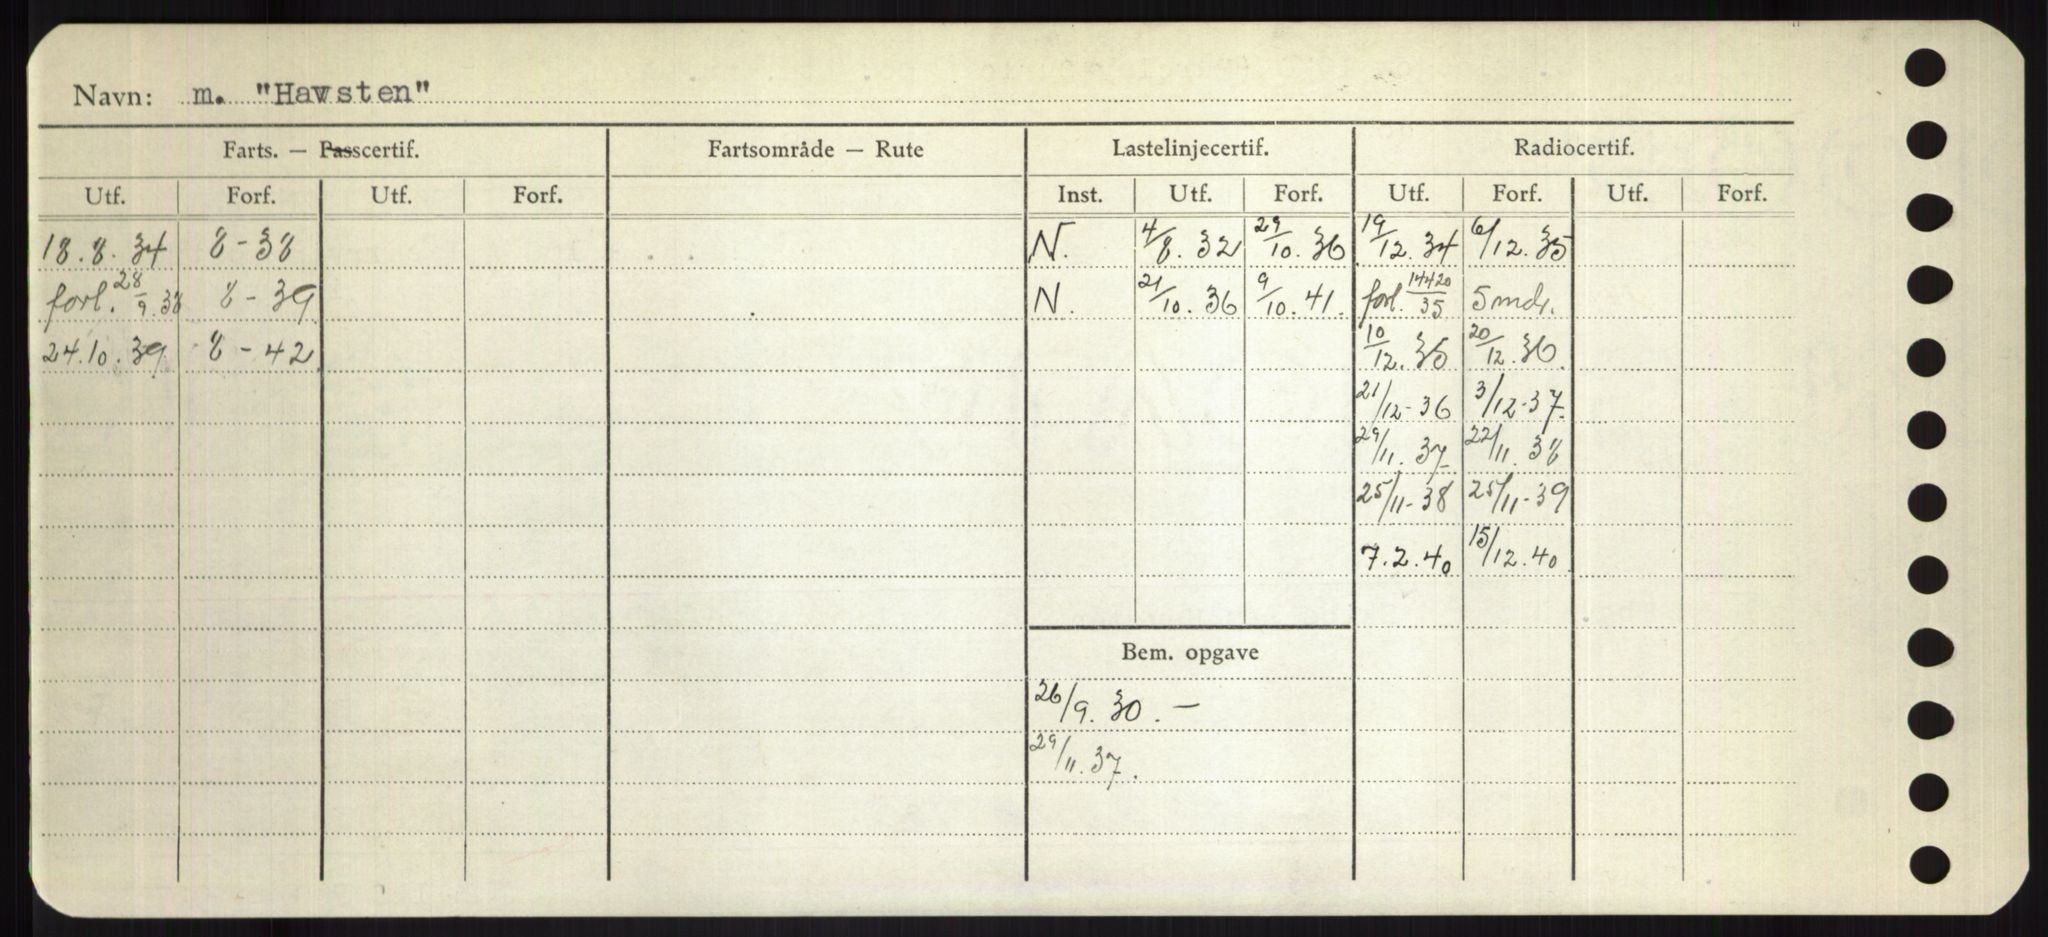 Navn: m. "Havsten"
Farts. — Passcertif. Fartsområde — Rute Lastelinjecertif. Radiocertif.
Utf. Forf. Utf. Forf. Inst. Utf. Forf. Utf. Forf. Utf. Forf.
18.8.34 8-38 N. 4/8.32 29/10.36 19/12.34 6/12.35
forl. 28/9.38 8-39 N. 21/10.36 9/10.41. forl. 14420/35 5 mdr.
24.10.39 8-42 10/12.35 20/12.36
21/12-36 3/12-37.
29/11.37 22/11.38
25/11-38 25/11-39
7.2.40 15/12.40
Bem. opgave
26/9.30.—
29/11.37.